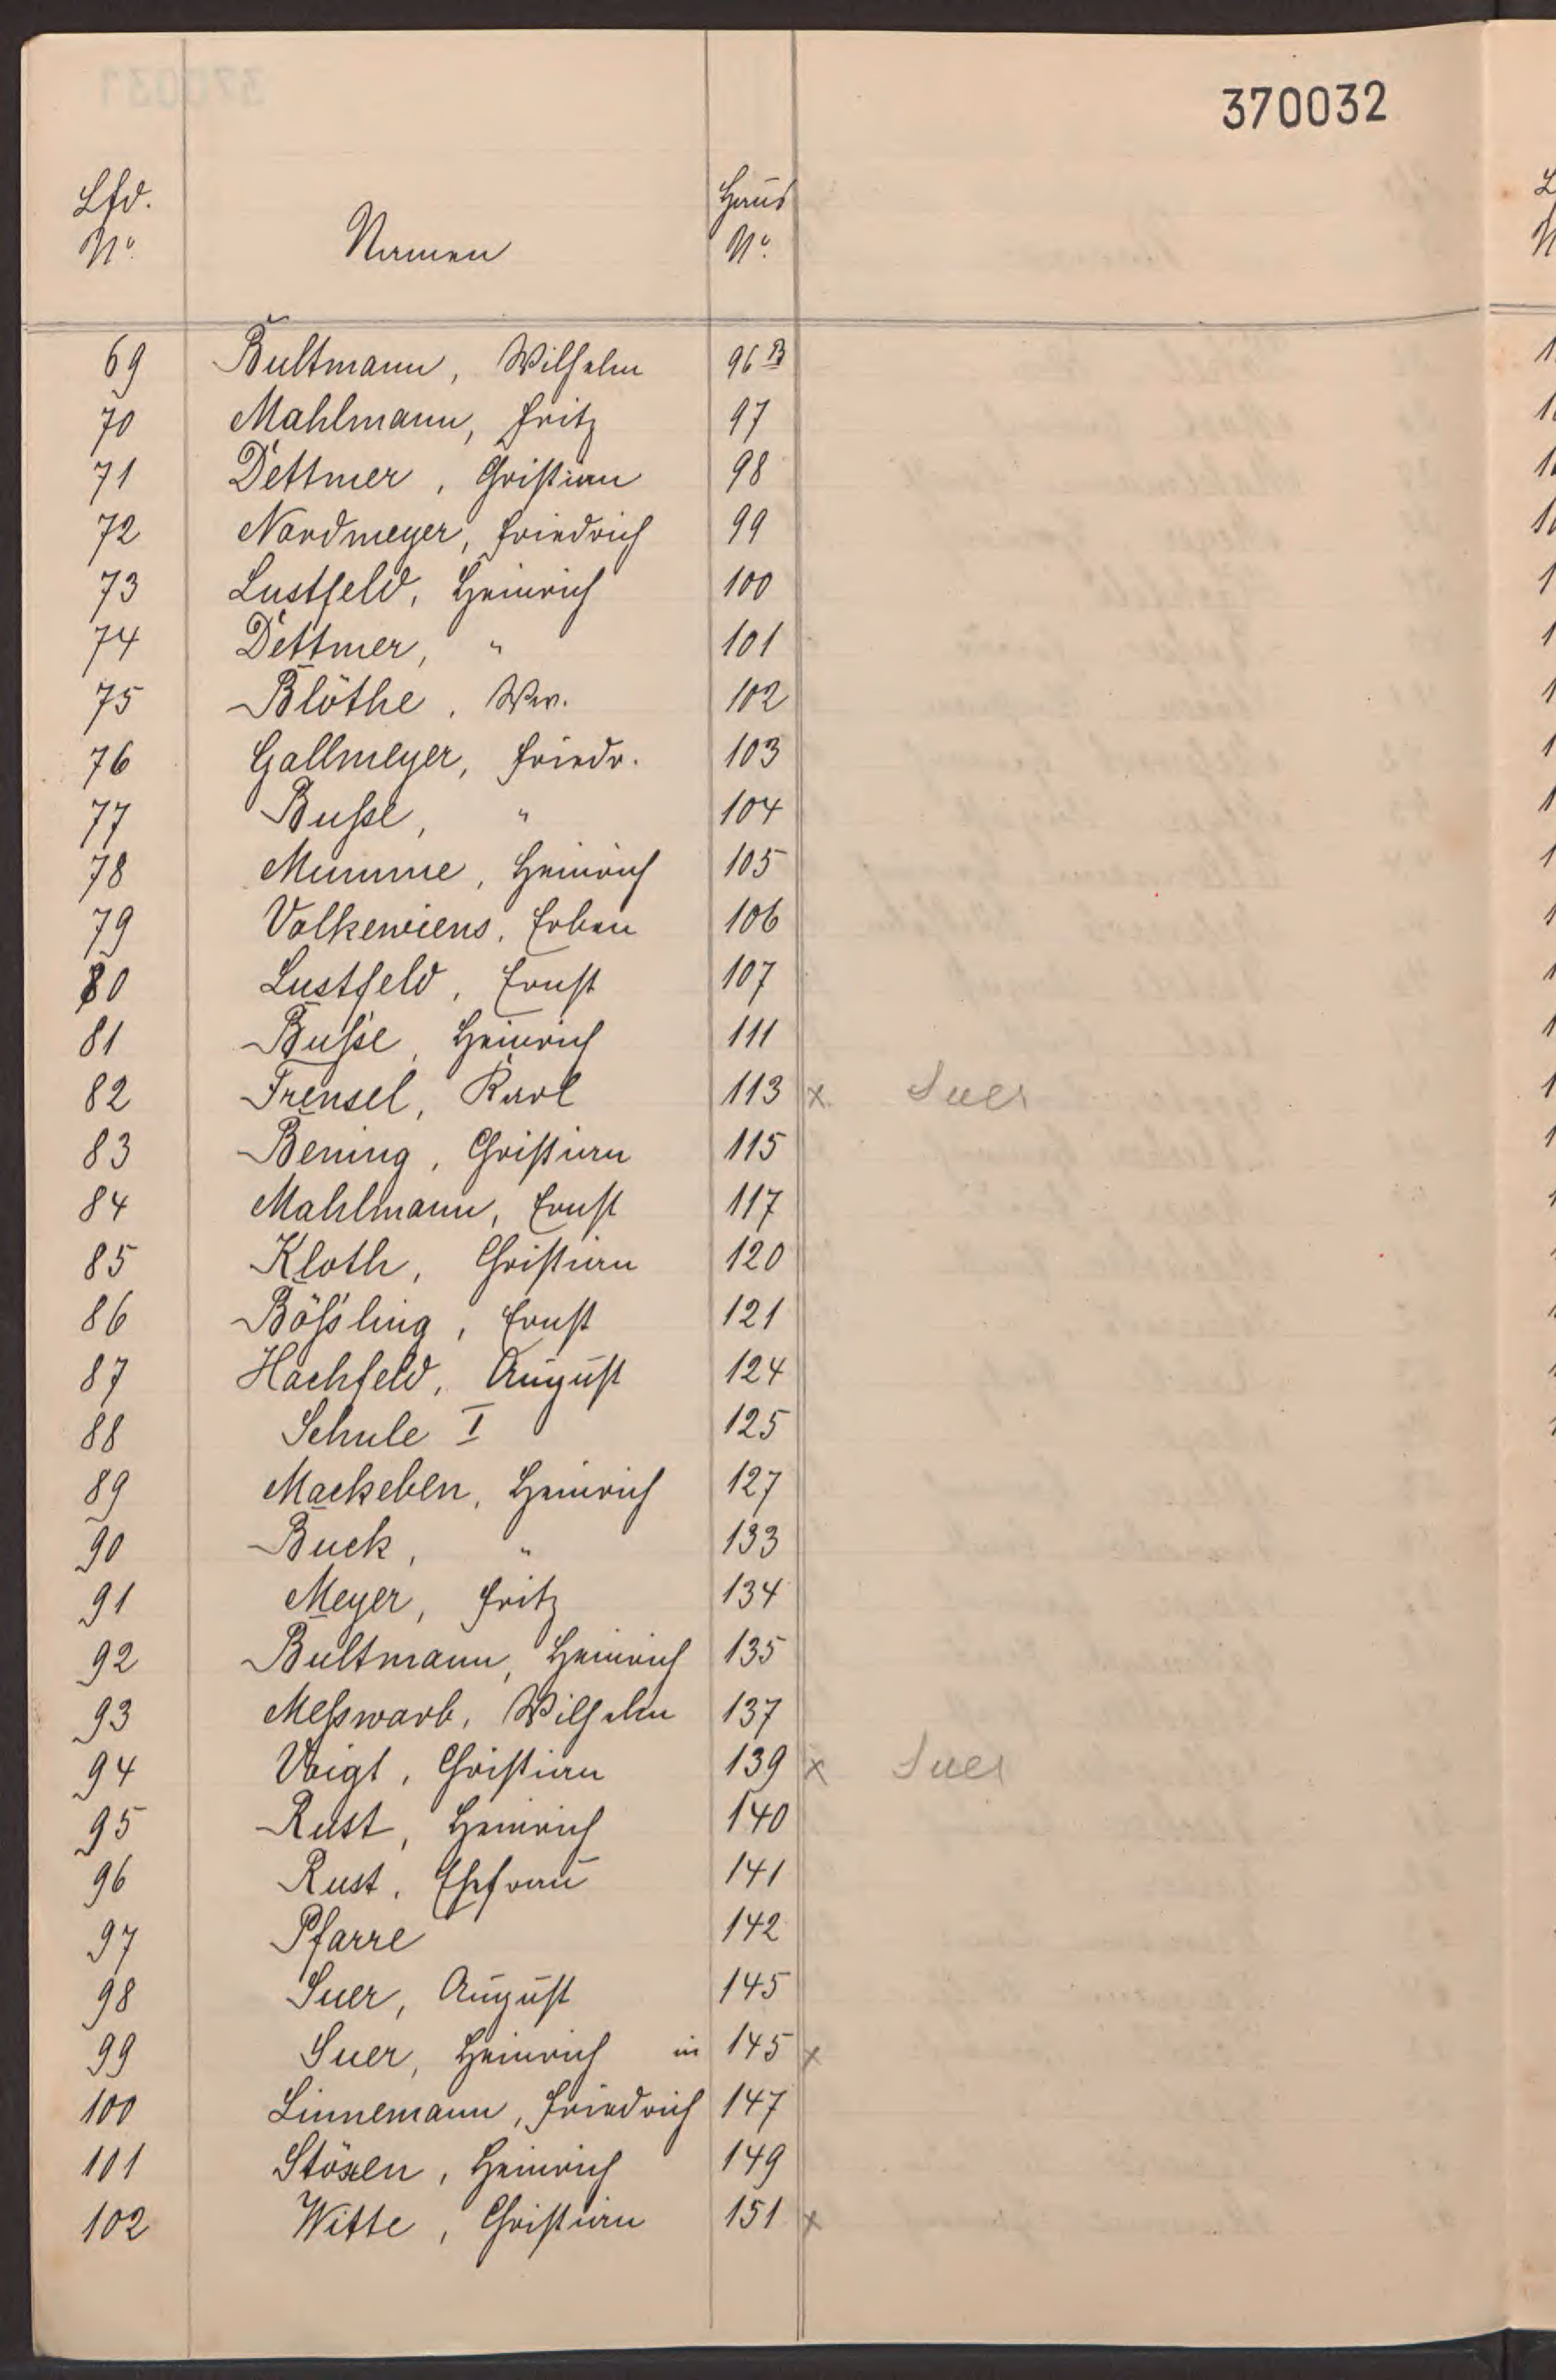 370032
Lfd. No. Namen Haus No.
69 Bultmann, Wilhelm 96 B
70 Mahlmann, Fritz 97
71 Dettmer, Christian 98
72 Nordmeyer, Friedrich 99
73 Lustfeld, Heinrich 100
74 Dettmer, " 101
75 Blöthe, Ww. 102
76 Gallmeyer, Friedr. 103
77 Buße, " 104
78 Mumme, Heinrich 105
79 Volkeniens, Erben 106
80 Lustfeld, Ernst 107
81 Buße, Heinrich 111
82 Frensel, Karl 113 x Suer
83 Bening, Christian 115
84 Mahlmann, Ernst 117
85 Kloth, Christian 120
86 Bößling, Ernst 121
87 Hachfeld, August 124
88 Schule I 125
89 Mackeben, Heinrich 127
90 Buck, " 133
91 Meyer, Fritz 134
92 Bultmann, Heinrich 135
93 Meßwarb, Wilhelm 137
94 Voigt, Christian 139 x Suer
95 Rust, Heinrich 140
96 Rust, Ehefrau 141
97 Pfarre 142
98 Suer, August 145
99 Suer, Heinrich in 145 x
100 Linnemann, Friedrich 147
101 Stöxen, Heinrich 149
102 Witte, Christian 151 x